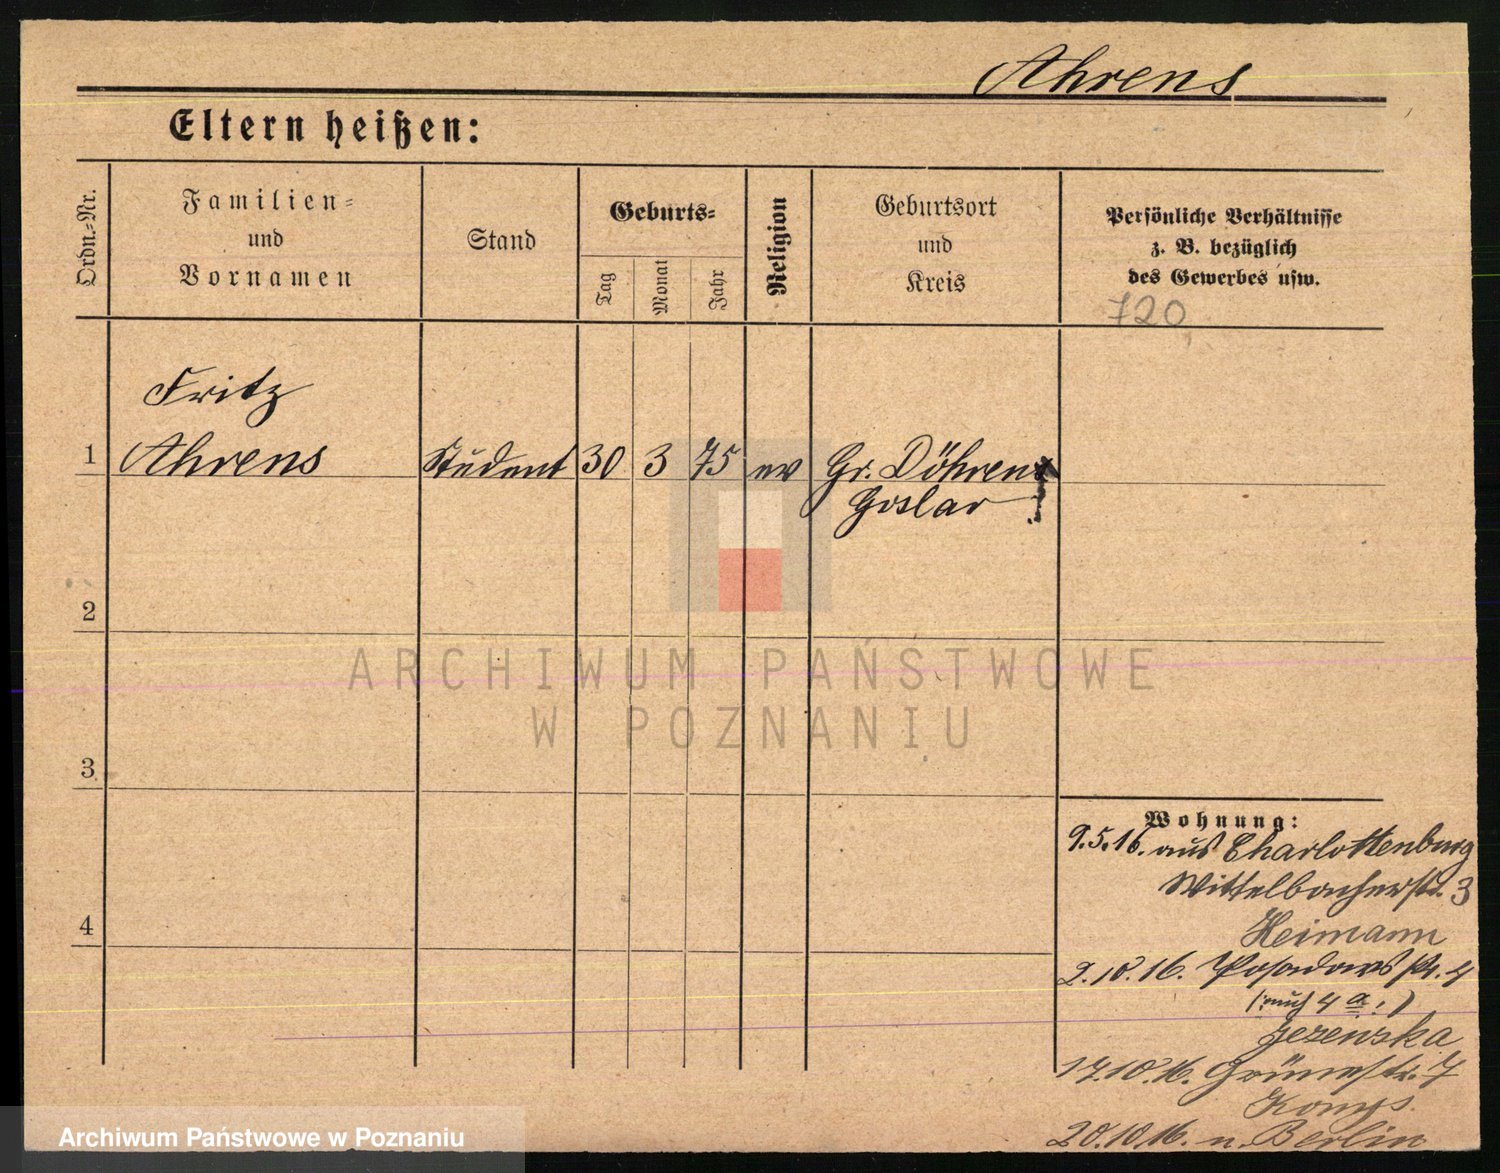 Ahrens
Eltern heißen:
Ordn.-Nr.
Familien-
und
Vornamen
Stand
Geburts-
Tag
Monat
Jahr
Religion
Geburtsort
und
Kreis
Persönliche Verhältnisse
z. B. bezüglich
des Gewerbes usw.
720
Fritz
1 Ahrens Student 30 3 75 ev Gr. Döhren
Goslar
2
3
4
ARCHIWUM PAŃSTWOWE
W POZNANIU
Wohnung:
9.5.16. aus Charlottenburg
Wittelbacherstr. 3
Heimann
2.10.16. Posadowskystr. 4
(: auch 4 a :)
Jezewska
17.10.16. Grünestr. 7
20.10.16. n. Berlin
Archiwum Państwowe w Poznaniu